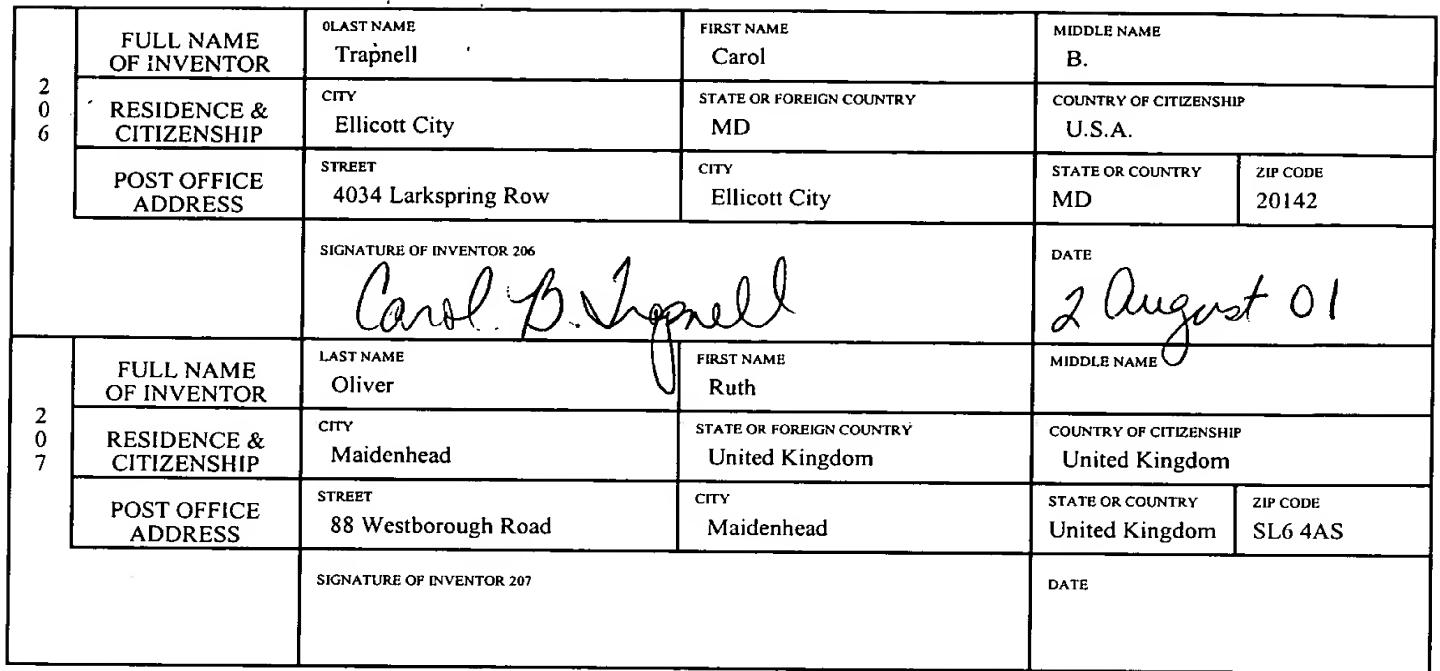 206
FULL NAME OF INVENTOR
0LAST NAME
Trapnell
FIRST NAME
Carol
MIDDLE NAME
B.
RESIDENCE & CITIZENSHIP
CITY
Ellicott City
STATE OR FOREIGN COUNTRY
MD
COUNTRY OF CITIZENSHIP
U.S.A.
POST OFFICE ADDRESS
STREET
4034 Larkspring Row
CITY
Ellicott City
STATE OR COUNTRY
MD
ZIP CODE
20142
SIGNATURE OF INVENTOR 206
Carol B. Trapnell
DATE
2 August 01
207
FULL NAME OF INVENTOR
LAST NAME
Oliver
FIRST NAME
Ruth
MIDDLE NAME
RESIDENCE & CITIZENSHIP
CITY
Maidenhead
STATE OR FOREIGN COUNTRY
United Kingdom
COUNTRY OF CITIZENSHIP
United Kingdom
POST OFFICE ADDRESS
STREET
88 Westborough Road
CITY
Maidenhead
STATE OR COUNTRY
United Kingdom
ZIP CODE
SL6 4AS
SIGNATURE OF INVENTOR 207
DATE